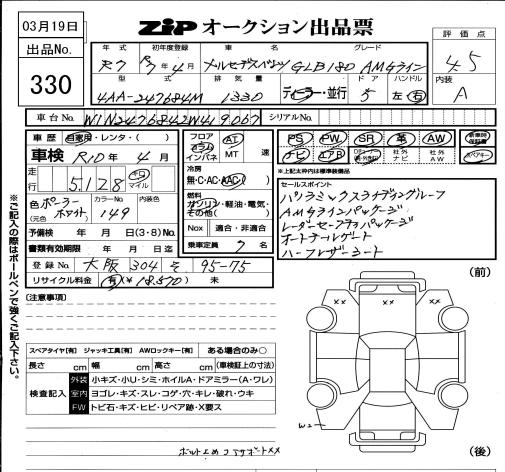 03月19日
ZIP オークション出品票
出品No.
330
年式 初年度登録 車名 グレード
R7 R7年4月 メルセデスベンツ GLB180 AMGライン
型式 排気量 ドア ハンドル
4AA-247684M 1330 デヒラー・並行 5 左・右
評価点
4.5
内装
A
車台No. W1N2476842W419067 シリアルNo.
車歴 自家用・レンタ・( )
車検 R10年 4月
走行 5,128 キロ マイル
色 ポーラーホワイト カラーNo. 149 内装色
(元色)
予備検 年 月 日(3・8)No.
書類有効期限 年 月 日迄
登録No. 大阪 304 そ 95-75
リサイクル料金 有(¥18,570) 未
フロア コラム インパネ AT MT 速
冷房 無・C・AC・AAC・( )
燃料 ガソリン・軽油・電気・その他( )
Nox 適合・非適合
乗車定員 7 名
PS PW SR 革 AW 新車時保証書
ナビ エアB 社外ナビ 社外AW スペアキー
※上記太枠内は標準装備品
セールスポイント
パノラミックスライディングルーフ
AMGラインパッケージ
レーダーセーフティパッケージ
オートテールゲート
ハーフレザーシート
※ご記入の際はボールペンで強くご記入下さい。
(注意事項)
スペアタイヤ[有] ジャッキ工具[有] AWロックキー[有] ある場合のみ○
長さ cm 幅 cm 高さ cm (車検証上の寸法)
検査記入
外装 小キズ・小リ・シミ・ホイルA・ドアミラー(A・ワレ)
室内 ヨゴレ・キズ・スレ・コゲ・穴・キレ・破れ・ウキ
FW トビ石・キズ・ヒビ・リペア跡・X要ス
(前)
XX XX
W2
(後)